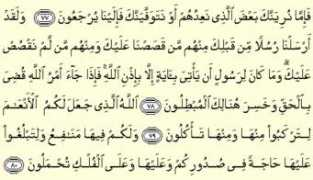 فَإِمَّا نُرِيَنَّكَ بَعْضَ ٱلَّذِى نَعِدُهُمْ أَوْ نَتَوَفَّيَنَّكَ فَإِلَيْنَا يُرْجَعُونَ ٧٧ وَلَقَدْ
أَرْسَلْنَا رُسُلًا مِّن قَبْلِكَ مِنْهُم مَّن قَصَصْنَا عَلَيْكَ وَمِنْهُم مَّن لَّمْ نَقْصُصْ
عَلَيْكَ ۗ وَمَا كَانَ لِرَسُولٍ أَن يَأْتِىَ بِـَٔايَةٍ إِلَّا بِإِذْنِ ٱللَّهِ ۚ فَإِذَا جَآءَ أَمْرُ ٱللَّهِ قُضِىَ
بِٱلْحَقِّ وَخَسِرَ هُنَالِكَ ٱلْمُبْطِلُونَ ٧٨ ٱللَّهُ ٱلَّذِى جَعَلَ لَكُمُ ٱلْأَنْعَـٰمَ
لِتَرْكَبُوا۟ مِنْهَا وَمِنْهَا تَأْكُلُونَ ٧٩ وَلَكُمْ فِيهَا مَنَـٰفِعُ وَلِتَبْلُغُوا۟
عَلَيْهَا حَاجَةً فِى صُدُورِكُمْ وَعَلَيْهَا وَعَلَى ٱلْفُلْكِ تُحْمَلُونَ ٨٠